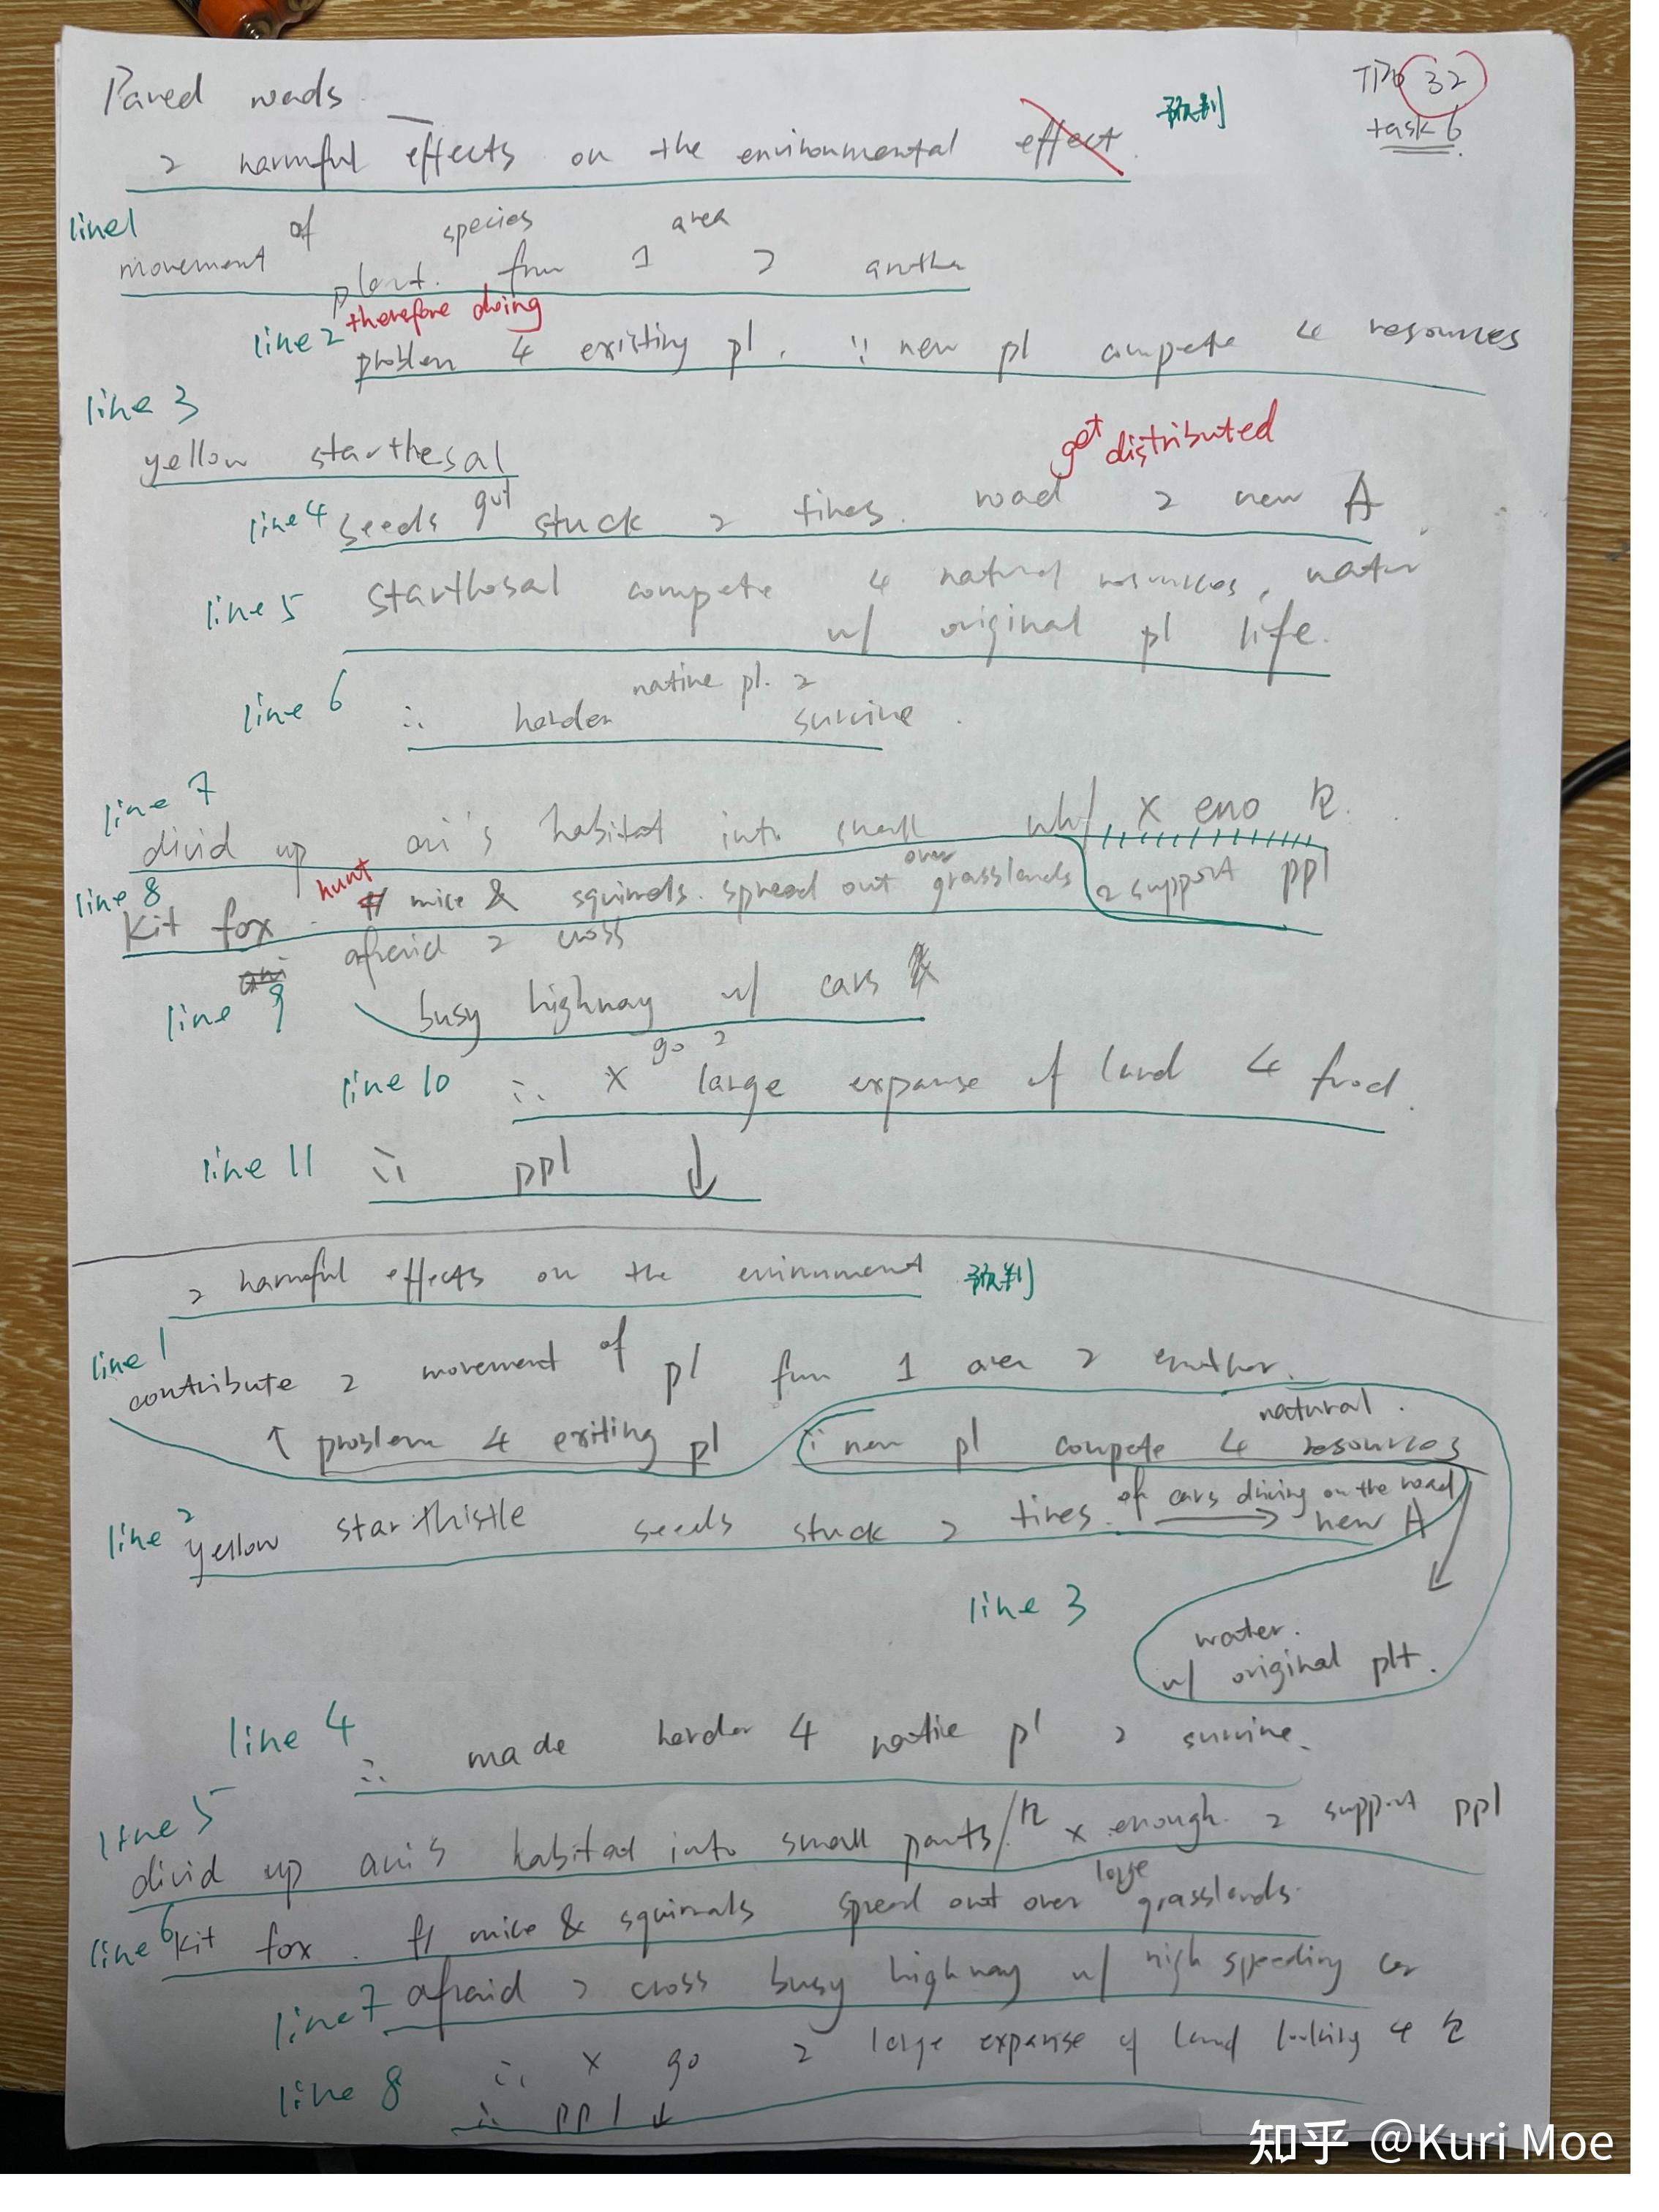 Paved roads
TPO 32
task 6
2 harmful effects on the environmental effect. 预判
line1
of species area
movement plant. from 1 2 another
therefore doing
line 2 problem 4 existing pl. ∵ new pl compete 4 resources
line 3
yellow starthesal
get distributed
line 4 seeds got stuck 2 tires. road 2 new A
line 5 starthosal compete 4 natural resources, water
w/ original pl life.
line 6 ∴ harder native pl. 2 survive.
line 7
divid up ani's habitat into small x eno R.
2 support ppl
line 8
kit fox. hunt mice & squirrels. spread out over grasslands
line 9 afraid 2 cross
busy highway w/ cars
line 10 ∴ x go 2 large expanse of land 4 food.
line 11 ∴ ppl ↓
2 harmful effects on the environment 预判
line 1
contribute 2 movement of pl from 1 area 2 another.
↑ problem 4 exiting pl ∵ new pl compete 4 natural resources
line 2 yellow starthistle seeds stuck 2 tires. of cars driving on the road → new A
line 3
water.
w/ original plt.
line 4 ∴ made harder 4 native pl 2 survive.
line 5
divid up ani's habitat into small parts/R x enough. 2 support ppl
line 6 kit fox. mice & squirrals spread out over large grasslands.
line 7 afraid 2 cross busy highway w/ high speeding car
line 8 ∴ x go 2 large expanse of land looking 4
∴ ppl ↓
知乎 @Kuri Moe